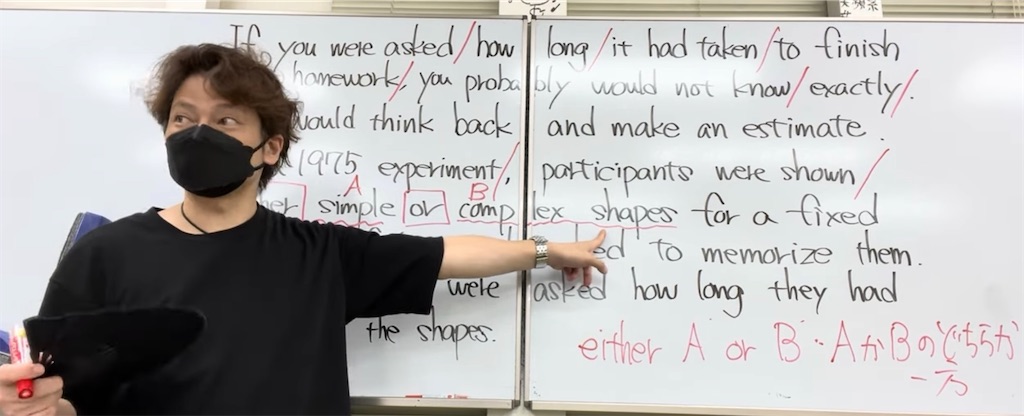 If you were asked/how long/it had taken/to finish
homework/, you probably would not know/exactly/.
would think back and make an estimate.
1975 experiment/, participants were shown/
A B
her simple or complex shapes for a fixed
ked to memorize them.
were asked how long they had
the shapes.
either A or B・AかBのどちらか
一方